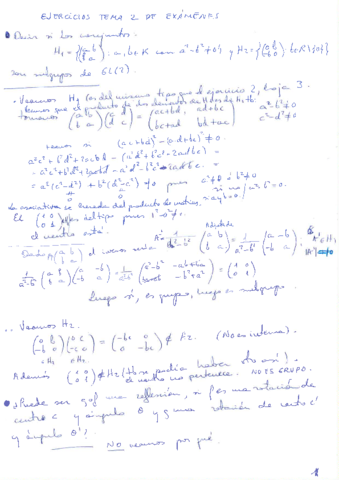 EJERCICIOS TEMA 2 DE EXÁMENES
• Decir si los conjuntos:
H₁ = {(a b / b a) : a, b ∈ K con a²-b² ≠ 0} y H₂ = {(0 b / -b 0) b ∈ K \ {0}}
son subgrupos de GL(2).
· Veamos H₁ (es del mismo tipo que el ejercicio 2, hoja 3.
Veamos que el producto de dos elementos de H₁ es de H₁:
Tomamos (a b / b a) (c d / d c) = (ac+bd ad+bc / bc+ad bd+ac) a²-b² ≠ 0 c²-d² ≠ 0
Veamos si (ac+bd)² - (ad+bc)² ≠ 0
a²c² + b²d² + 2acbd - (a²d² + b²c² + 2adbc) =
= a²c² + b²d² + 2acbd - a²d² - b²c² - 2adbc =
= a²(c²-d²) + b²(d²-c²) ≠ 0 pues
La asociativa se hereda del producto de matrices
El (1 0 / 0 1) es del tipo pues 1²-0² ≠ 0.
el neutro está.
Dado A (a b / b a) el inverso sería A⁻¹ = 1/(a²-b²) (a -b / -b a)
Adjuntada
1/(a²-b²) (a b / b a) (a -b / -b a) = 1/(a²-b²) (a²-b² -ab+ba / -b²+a²) = (1 0 / 0 1)
Luego sí, es grupo, luego es subgrupo.
·· Veamos H₂.
(0 b / -b 0) (0 c / -c 0) = (-bc 0 / 0 -bc) ∉ H₂. (No es interna).
Además (1 0 / 0 1) ∉ H₂ (tb se podía haber visto así!
el neutro no pertenece. NO ES GRUPO.
• ¿Puede ser g∘f una reflexión, si f es una rotación de
centro c y ángulo θ y g una rotación de centro c'
y ángulo θ'?
NO veamos por qué.
1